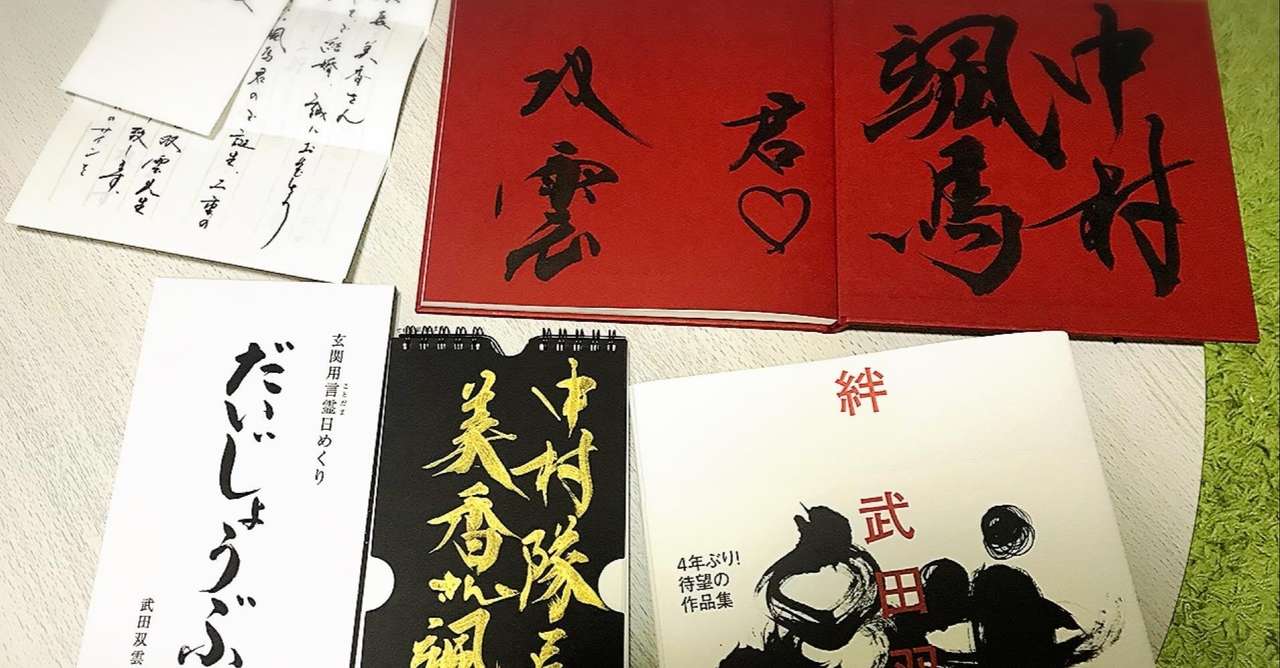 美香さん
結婚、誠におめでとう
馬君のご誕生、
双雲先生
致します。
のサインを
中村
颯馬
君♡
双雲
玄関用言霊日めくり
ことだま
だいじょうぶ
武田双雲
中村隊
美香さん颯
絆
武田
4年ぶり!
待望の
作品集